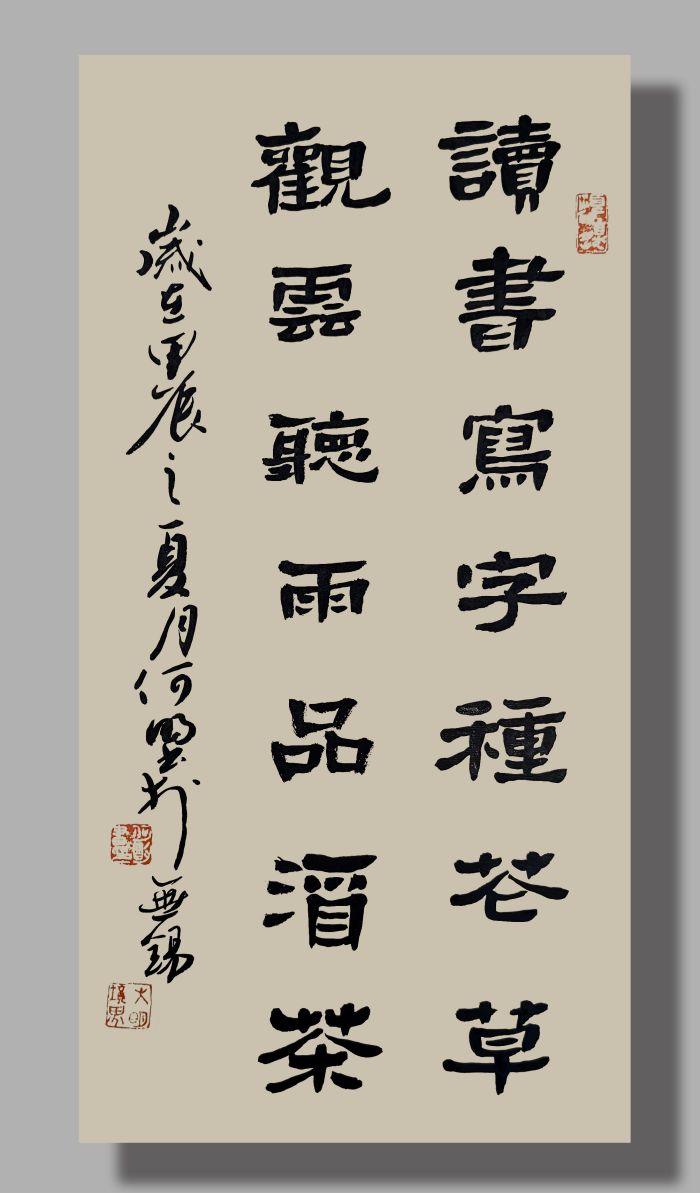 讀書寫字種花草
觀雲聽雨品酒茶
歲在甲辰之夏月何墅於無錫
大明境界